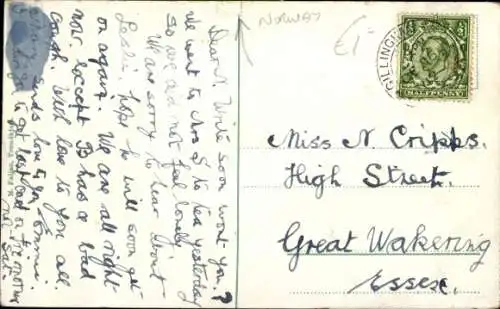 Dear N. Write soon won't you?
We went to Mrs S to tea yesterday
so we did not feel lonely.
We are sorry to hear about
Leslie, hope he will soon get
on again. We are all right
now, except B has a bad
cough. With love to you all
sends love to you
to get
NORWAY
£1-
GILLINGH
HALFPENNY
Miss N. Cripps.
High Street.
Great Wakering
Essex.